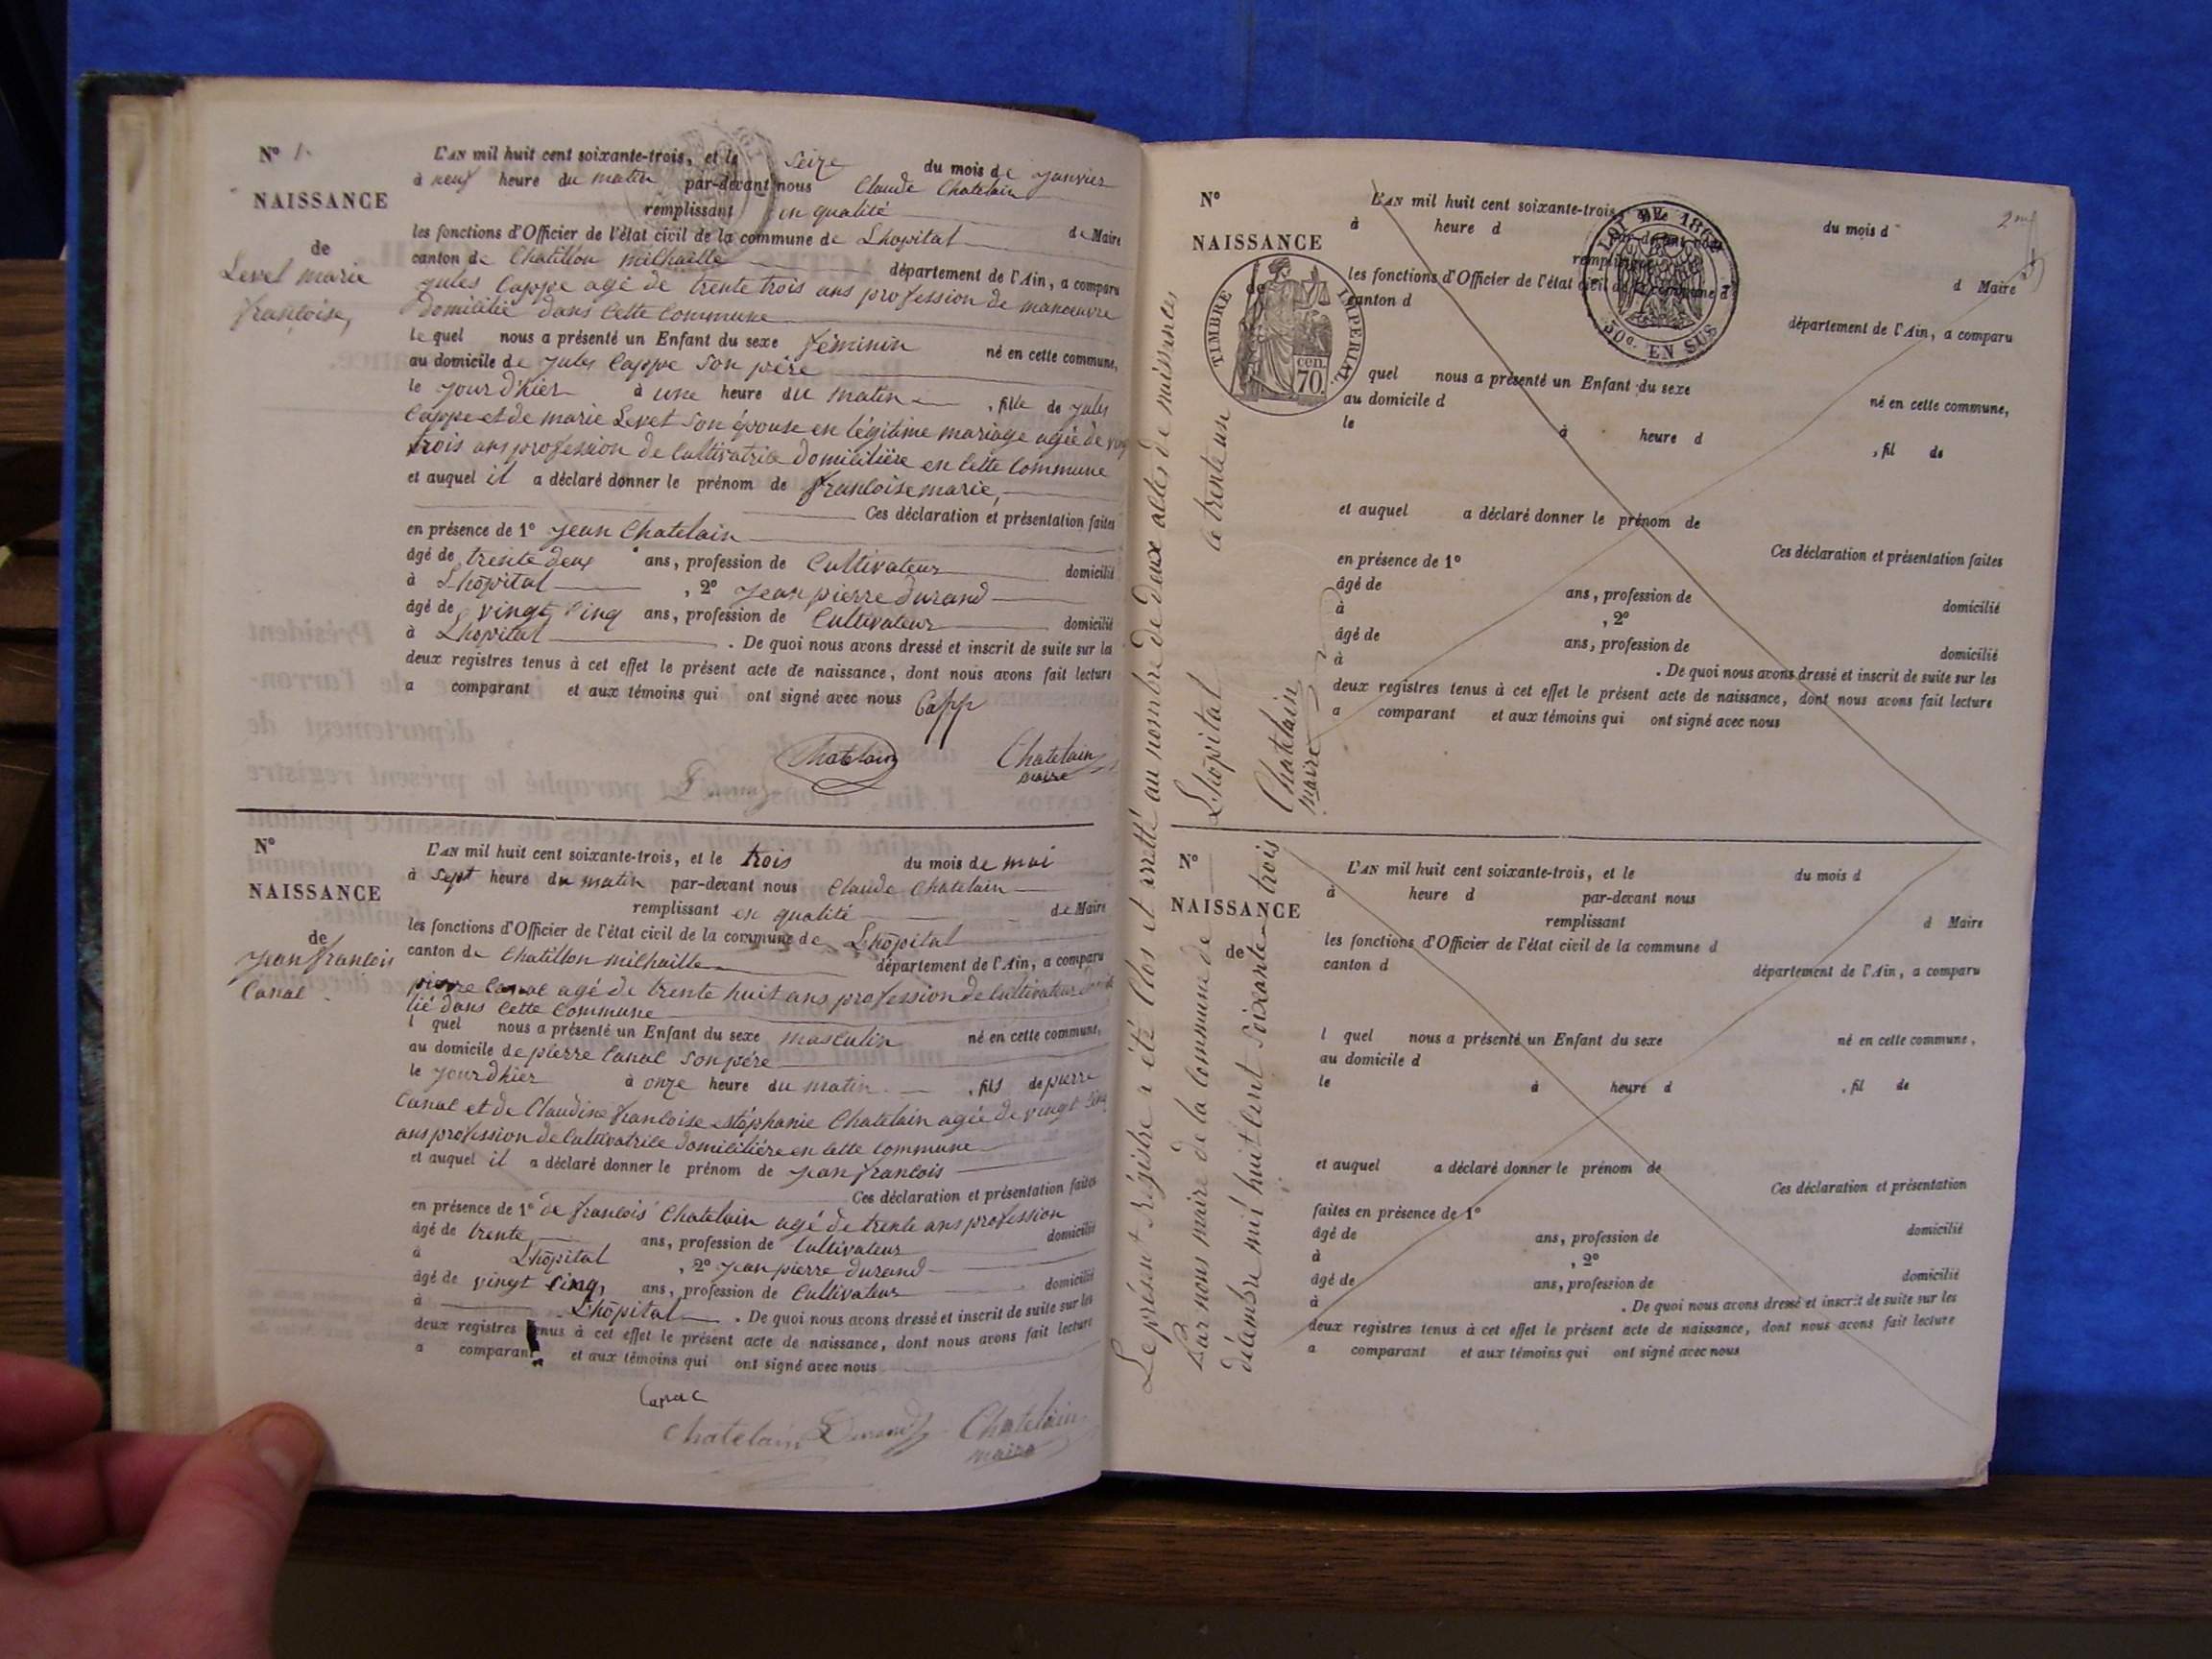 N° 1.
NAISSANCE
de
Levet marie
françoise,
L'AN mil huit cent soixante-trois, et le Seize du mois de Janvier
à neuf heure du matin par-devant nous Claude Chatelain
remplissant en qualité de Maire
les fonctions d'Officier de l'état civil de la commune de Lhopital
canton de Chatillon michaille département de l'Ain, a comparu
jules Cappe agé de trente trois ans profession de manœuvre
domicilié dans cette commune
le quel nous a présenté un Enfant du sexe féminin né en cette commune,
au domicile de jules Cappe son père
le jour d'hier à une heure du matin , fille de jules
Cappe et de marie Levet son épouse en légitime mariage agée de
trois ans profession de cultivatrice domicilière en cette commune
et auquel il a déclaré donner le prénom de françoise marie,
Ces déclaration et présentation faites
en présence de 1° jean Chatelain
âgé de trente deux ans, profession de Cultivateur domicilié
à Lhôpital , 2° jean pierre durand
âgé de vingt cinq ans, profession de Cultivateur domicilié
à Lhopital . De quoi nous avons dressé et inscrit de suite sur les
deux registres tenus à cet effet le présent acte de naissance, dont nous avons fait lecture
a comparant et aux témoins qui ont signé avec nous Capp
Chatelain Chatelain
maire
N°
NAISSANCE
de
jean francois
Canal
L'AN mil huit cent soixante-trois, et le trois du mois de mai
à sept heure du matin par-devant nous Claude Chatelain
remplissant en qualité de Maire
les fonctions d'Officier de l'état civil de la commune de Lhôpital
canton de Chatillon michaille département de l'Ain, a comparu
pierre Canal agé de trente huit ans profession de cultivateur
lié dans cette commune
l quel nous a présenté un Enfant du sexe masculin né en cette commune,
au domicile de pierre Canal son père
le jour d'hier à onze heure du matin. , fils de pierre
Canal et de Claudine francoise stéphanie Chatelain agée de vingt cinq
ans profession de cultivatrice domicilière en cette commune
et auquel il a déclaré donner le prénom de jean francois
Ces déclaration et présentation faites
en présence de 1° de francois Chatelain agé de trente ans profession
âgé de trente ans, profession de Cultivateur domicilié
à Lhôpital , 2° jean pierre durand
âgé de vingt cinq, ans, profession de Cultivateur domicilié
à Lhôpital . De quoi nous avons dressé et inscrit de suite sur les
deux registres tenus à cet effet le présent acte de naissance, dont nous avons fait lecture
a comparant et aux témoins qui ont signé avec nous
Canal
Chatelain Durand Chatelain
maire
Le présent Régistre a été clos et arretté au nombre de deux actes de naissances
Par nous maire de la commune de Lhôpital le trente un
décembre mil huit cent soixante trois
Chatelain
maire
N°
NAISSANCE
de
TIMBRE IMPERIAL
70 cen
LOI DE 1862
50c. EN SUS
2me
L'AN mil huit cent soixante-trois, et le du mois d
à heure d par-devant nous
remplissant d Maire
les fonctions d'Officier de l'état civil de la commune d
canton d département de l'Ain, a comparu
quel nous a présenté un Enfant du sexe né en cette commune,
au domicile d
le à heure d , fil de
et auquel a déclaré donner le prénom de
Ces déclaration et présentation faites
en présence de 1°
âgé de ans, profession de domicilié
à , 2°
âgé de ans, profession de domicilié
à . De quoi nous avons dressé et inscrit de suite sur les
deux registres tenus à cet effet le présent acte de naissance, dont nous avons fait lecture
a comparant et aux témoins qui ont signé avec nous
N°
NAISSANCE
de
L'AN mil huit cent soixante-trois, et le du mois d
à heure d par-devant nous
remplissant d Maire
les fonctions d'Officier de l'état civil de la commune d
canton d département de l'Ain, a comparu
l quel nous a présenté un Enfant du sexe né en cette commune,
au domicile d
le à heure d , fil de
et auquel a déclaré donner le prénom de
Ces déclaration et présentation
faites en présence de 1°
âgé de ans, profession de domicilié
à , 2°
âgé de ans, profession de domicilié
à . De quoi nous avons dressé et inscrit de suite sur les
deux registres tenus à cet effet le présent acte de naissance, dont nous avons fait lecture
a comparant et aux témoins qui ont signé avec nous